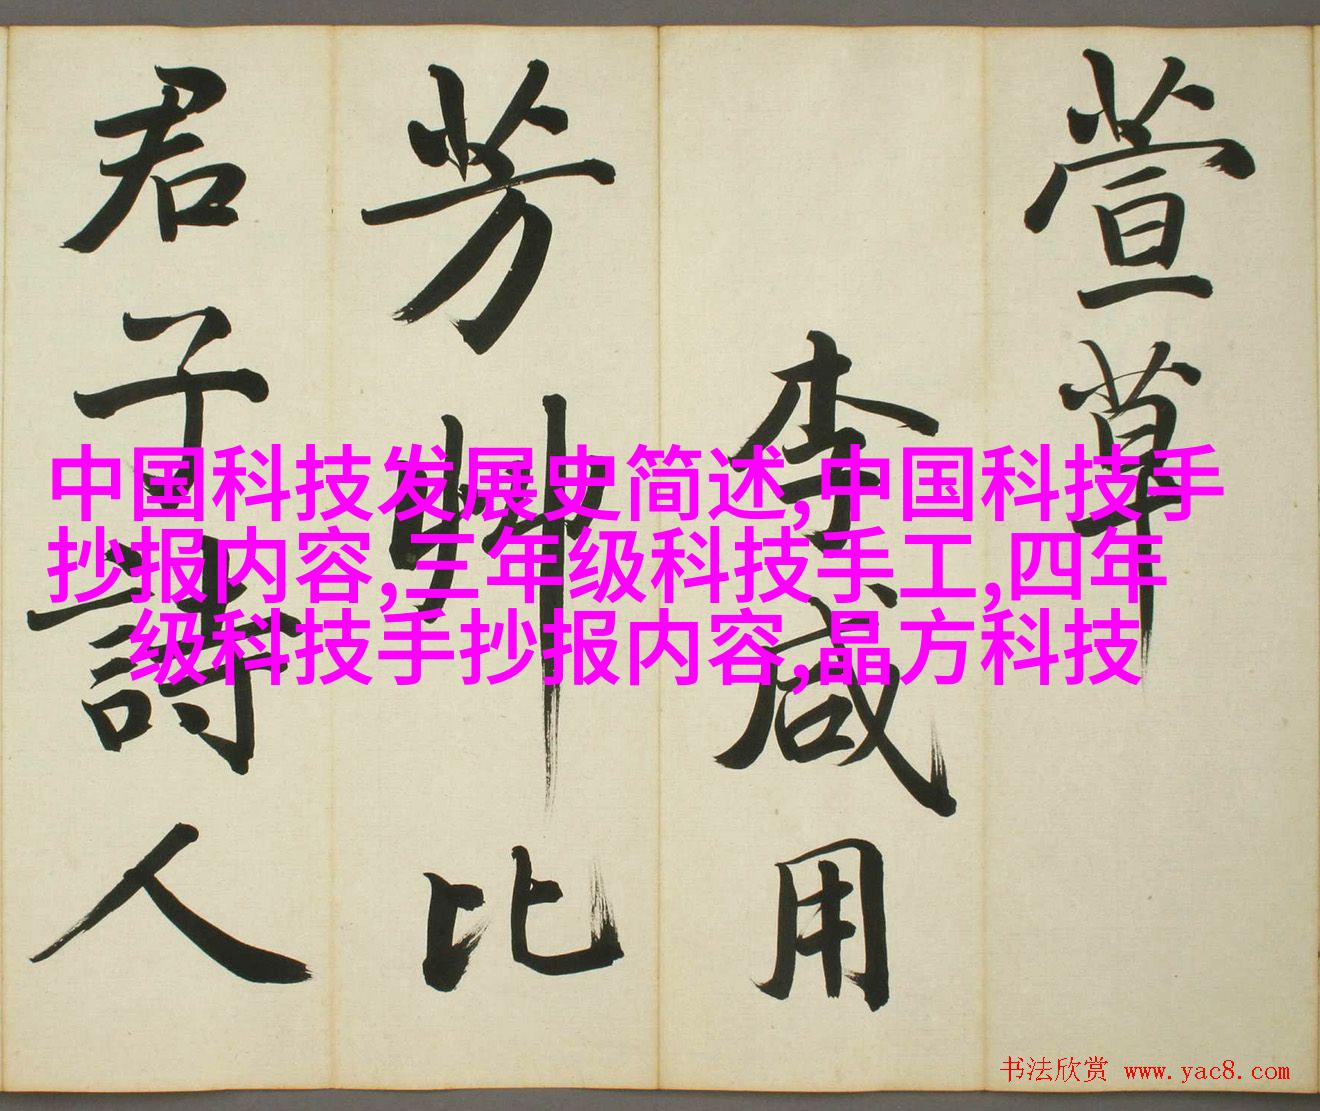 萱草
李咸用
芳艸比
君子詩人
中国科技发展史简述,中国科技手
抄报内容,三年级科技手工,四年
级科技手抄报内容,晶方科技
书法欣赏 www.yac8.com